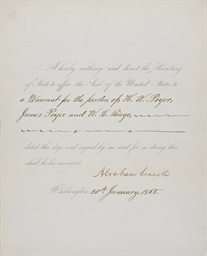 I hereby authorize and direct the Secretary
of State to affix the Seal of the United States to
a Warrant for the pardon of H. A. Pryor,
James Pryor and W. H. Ringo,
dated this day and signed by me and for so doing this
shall be his warrant.
Abraham Lincoln
Washington, 20th January, 1865.